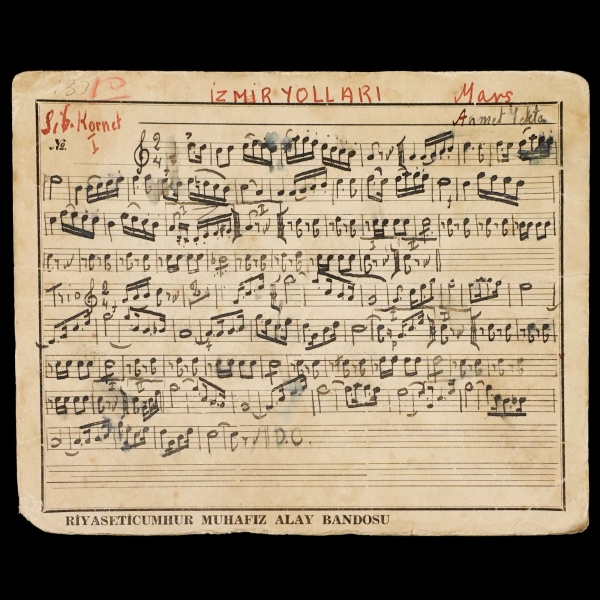 İZMİR YOLLARI
Marş
Ahmet Yekta
Sib. Kornet
I
№
TRIO
D.C.
RİYASETİCUMHUR MUHAFIZ ALAY BANDOSU